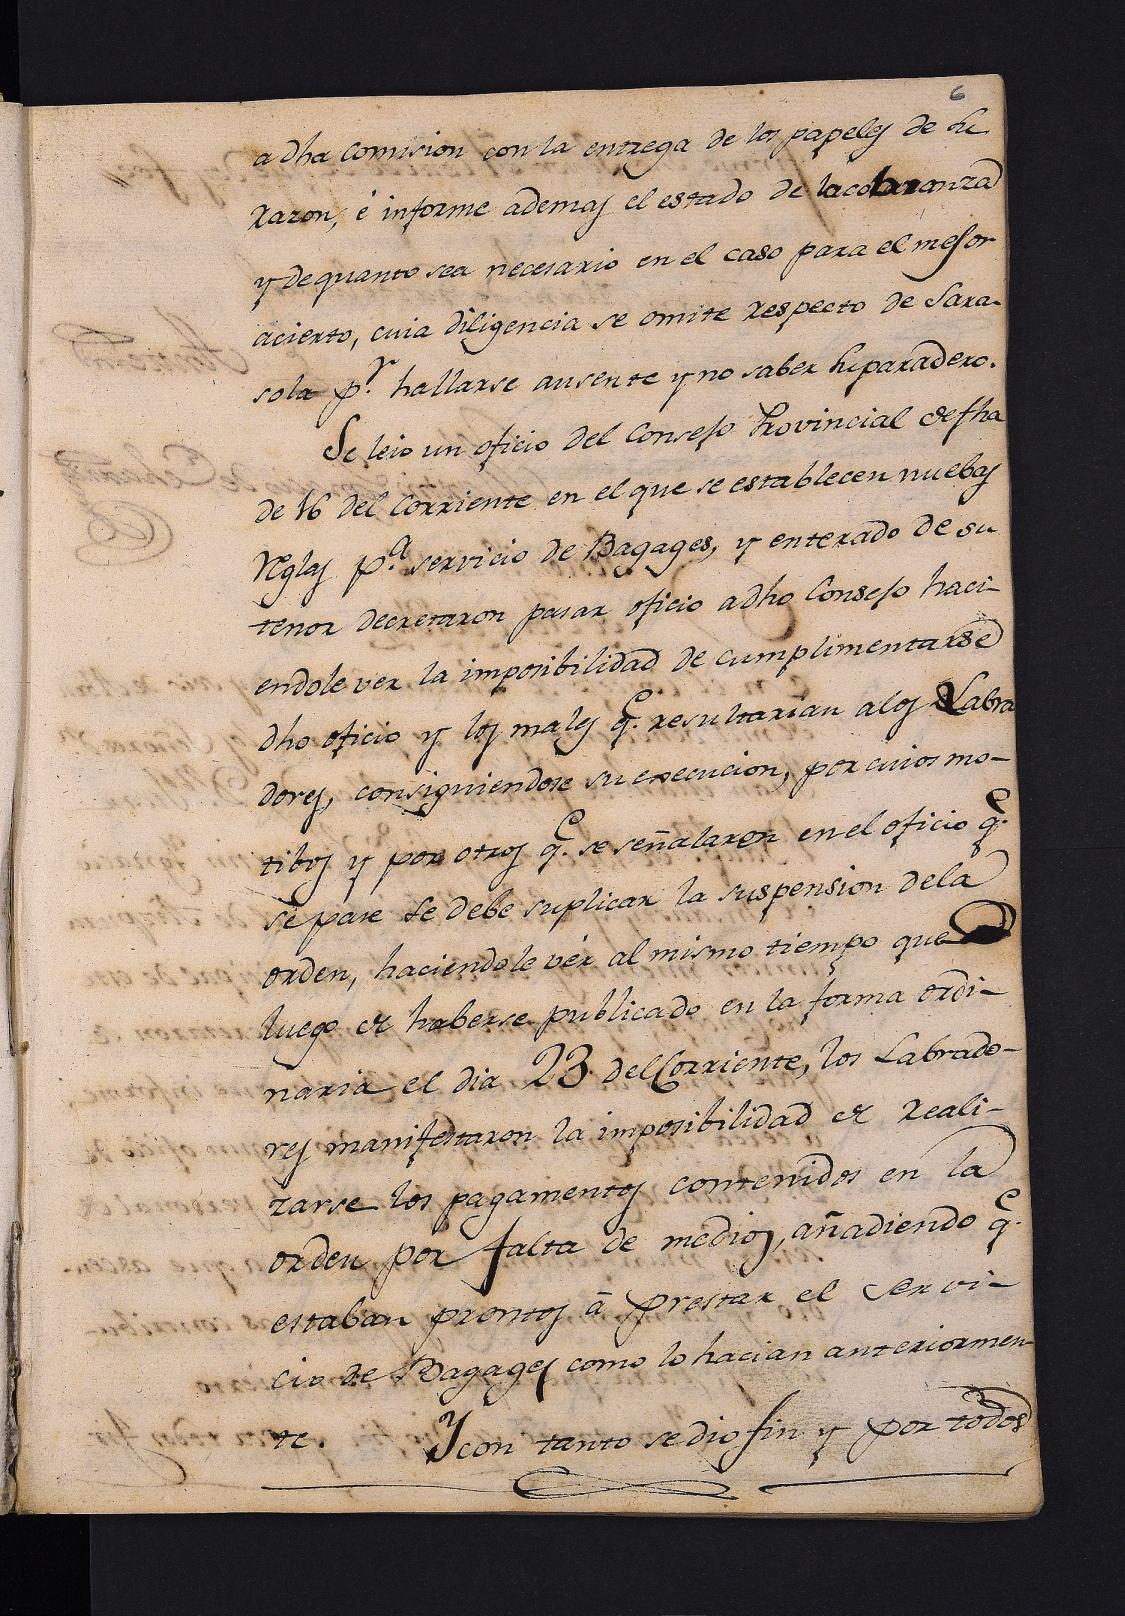 6
adha comision con la entrega de los papeles de su
razon, é informe ademas el estado de la cobranza
y de quanto sea necesario en el caso para el mejor
acierto, cuia diligencia se omite respecto de Sara-
sola pr. hallarse ausente y no saber su paradero.
Se leio un oficio del Consejo Provincial de fha
de 16 del Corriente en el que se establecen nuebas
Reglas pa. servicio de Bagages, y enterado de su
tenor decretaron pasar oficio adho Consejo haci-
endole ver la imposibilidad de cumplimentarse
dho oficio y los males qe. resultarian a los Labra
dores, consiguiendose su execucion, por cuios mo-
tibos y por otros qe. se señalaron en el oficio qe.
se pase se debe suplicar la suspension dela
orden, haciendole vér al mismo tiempo que
luego de haberse publicado en la forma ordi-
naria el dia 23 del Corriente, los Labrado-
res manifestaron la imposibilidad de reali-
zarse los pagamentos contenidos en la
orden por falta de medios, añadiendo qe.
estaban prontos á prestar el servi-
cio de Bagages como lo hacian anteriormen
te. Y con tanto se dio fin y por todos